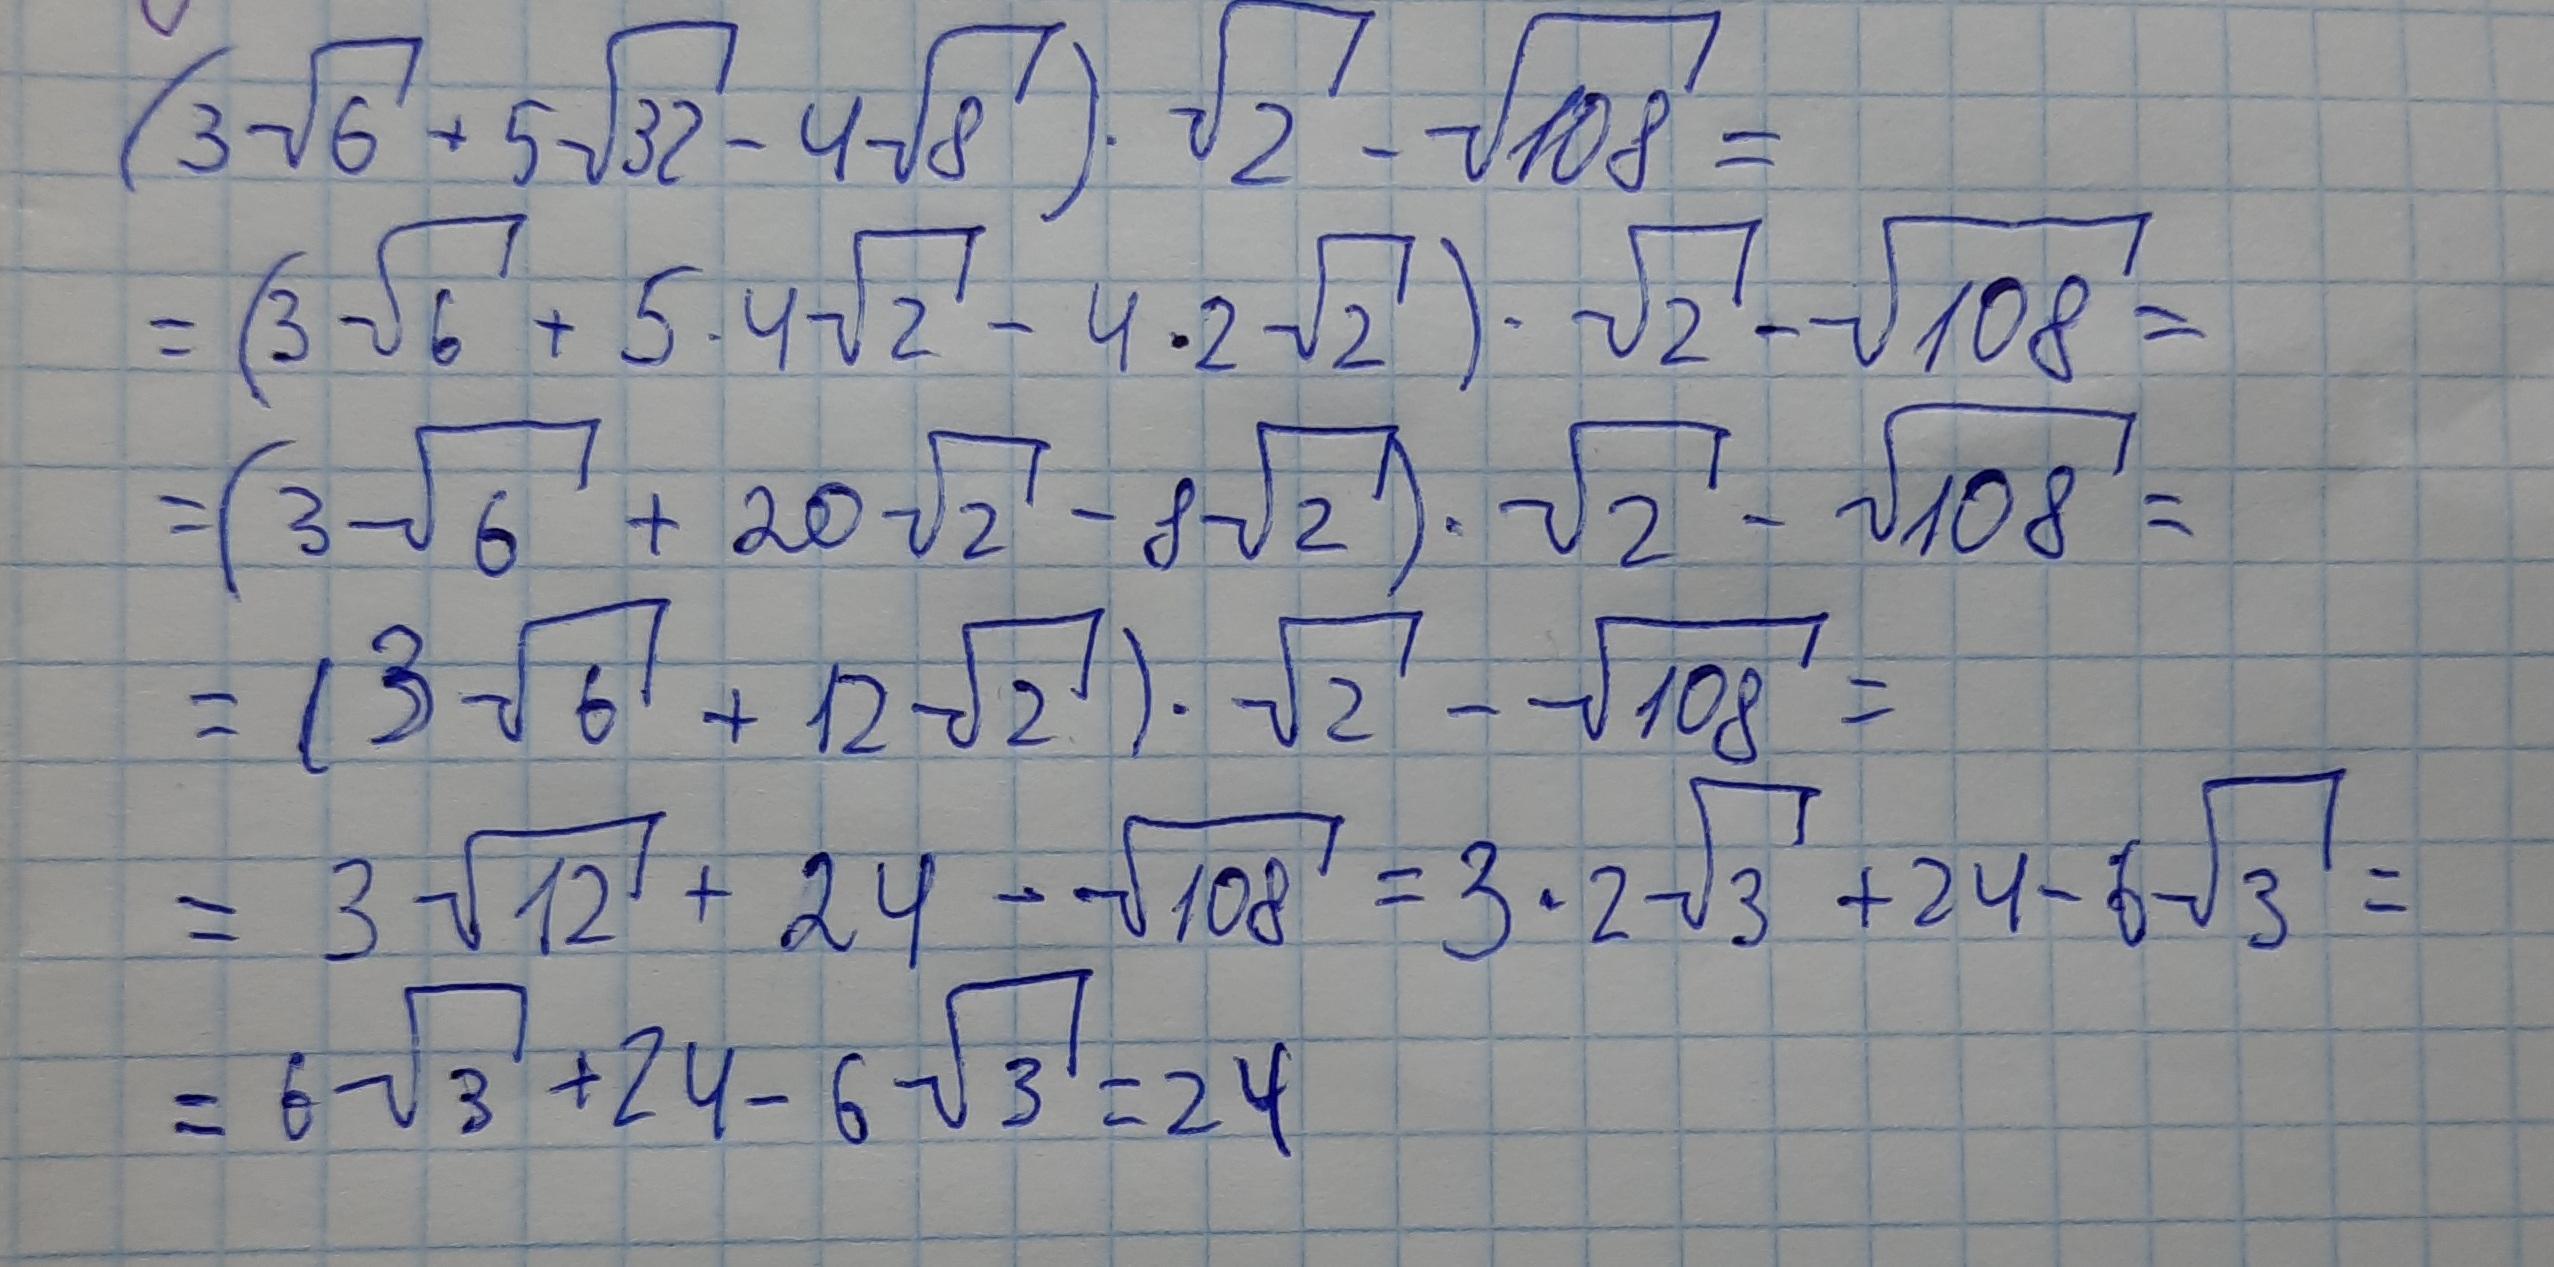 (3√6 + 5√32 - 4√8) · √2 - √108 =
= (3√6 + 5·4√2 - 4·2√2) · √2 - √108 =
= (3√6 + 20√2 - 8√2) · √2 - √108 =
= (3√6 + 12√2) · √2 - √108 =
= 3√12 + 24 - √108 = 3·2√3 + 24 - 6√3 =
= 6√3 + 24 - 6√3 = 24